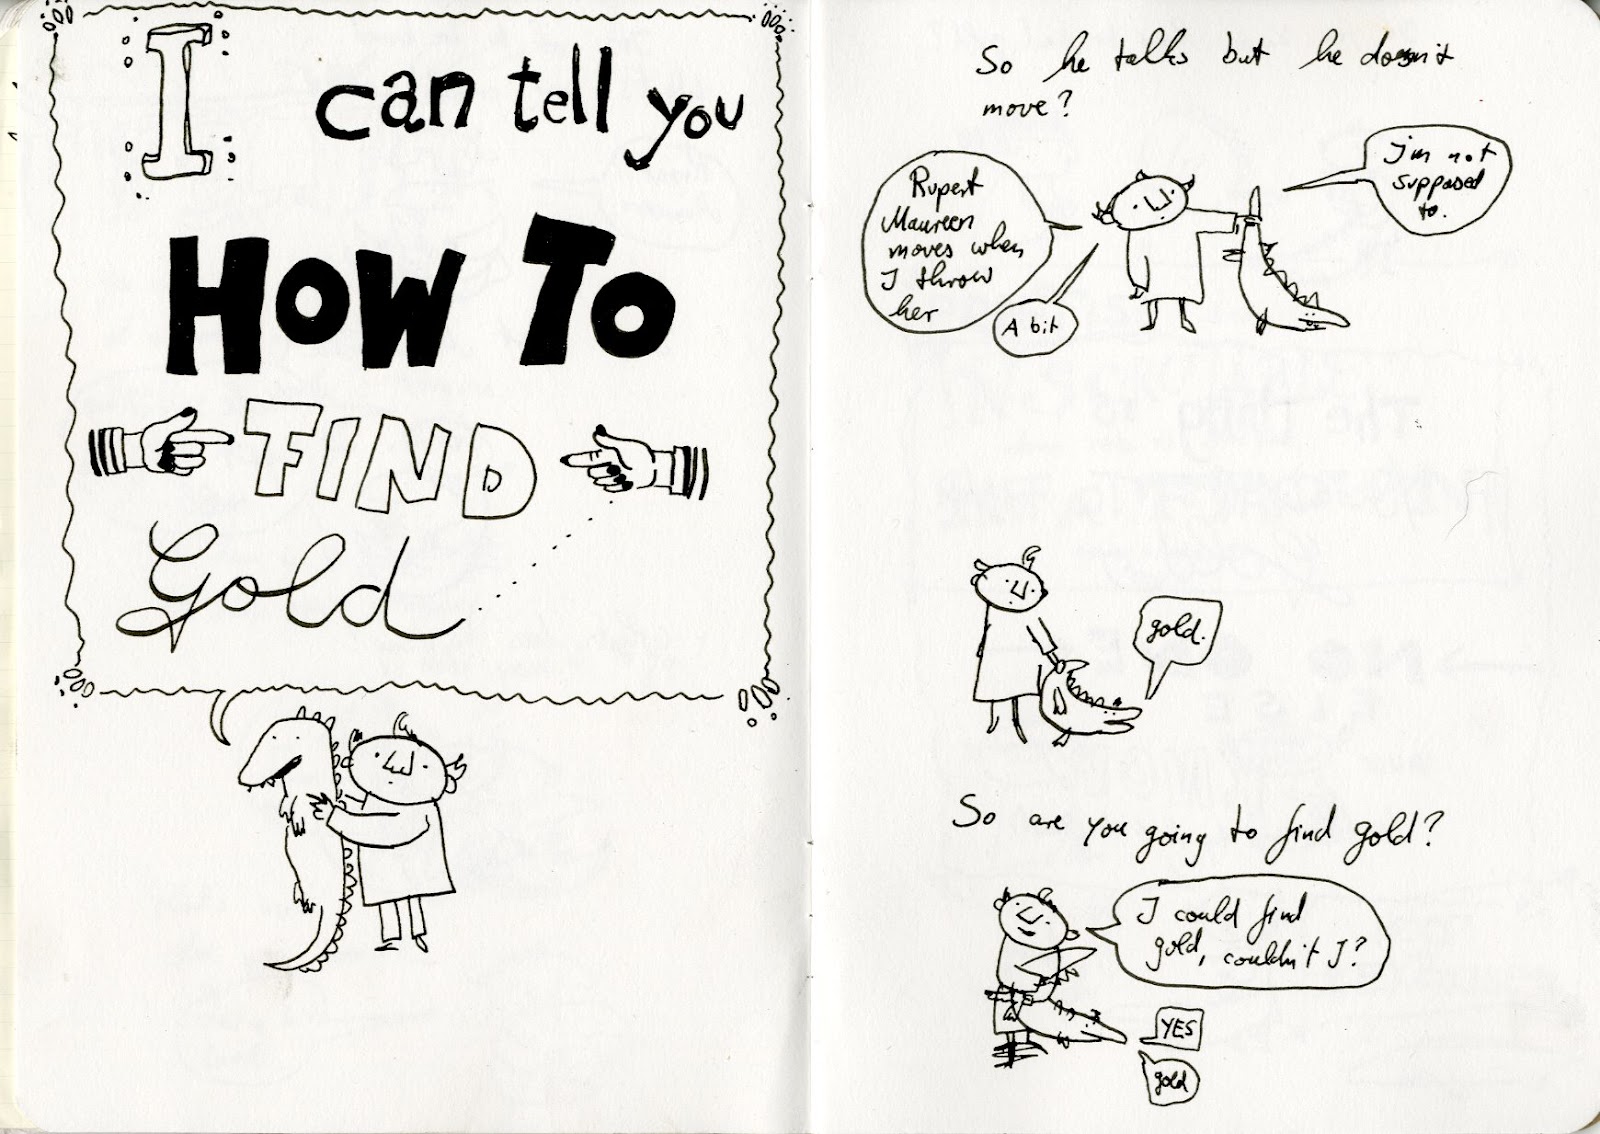 I can tell you
HOW TO
FIND
Gold
So he talks but he doesn't
move?
Rupert
Maureen
moves when
I throw
her
A bit
I'm not
supposed
to.
gold.
So are you going to find gold?
I could find
gold, couldn't I?
YES
gold